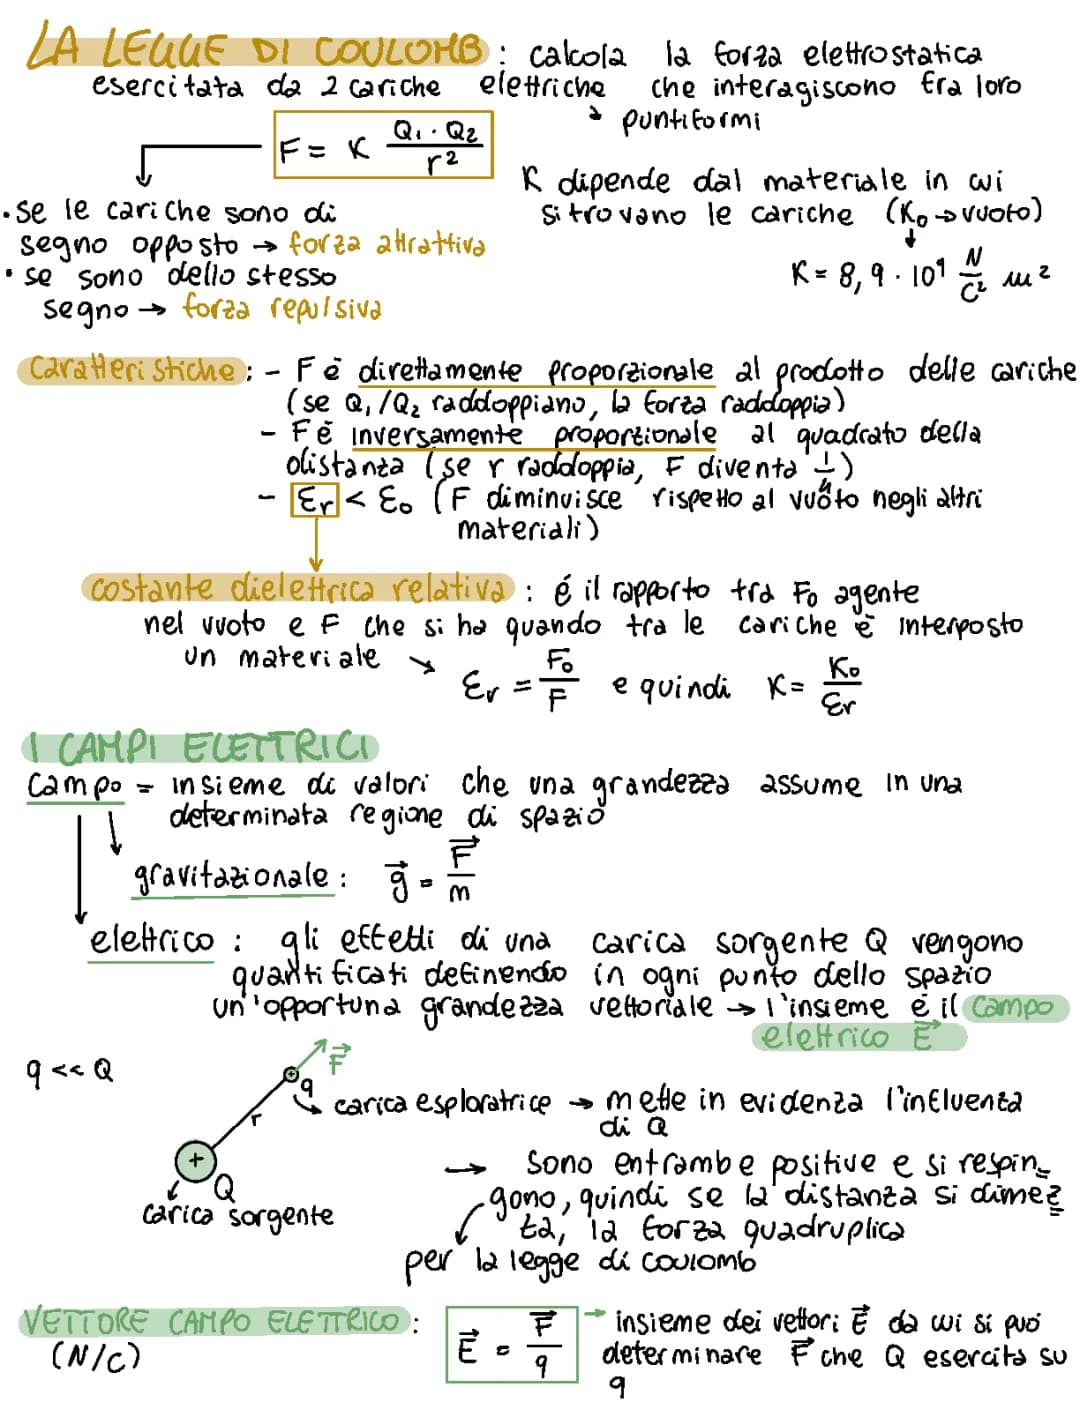 LA LEGGE DI COULOMB : calcola la forza elettrostatica
esercitata da 2 cariche elettriche che interagiscono fra loro
puntiformi
F = K Q₁ · Q₂ / r²
K dipende dal materiale in cui
si trovano le cariche (K₀ → vuoto)
K = 8,9 · 10⁹ N/C² m²
• se le cariche sono di
segno opposto → forza attrattiva
• se sono dello stesso
segno → forza repulsiva
Caratteristiche : - F è direttamente proporzionale al prodotto delle cariche
(se Q₁/Q₂ raddoppiano, la forza raddoppia)
- F è inversamente proporzionale al quadrato della
distanza (se r raddoppia, F diventa 1/4)
- εr < ε₀ (F diminuisce rispetto al vuoto negli altri
materiali)
costante dielettrica relativa : é il rapporto tra F₀ agente
nel vuoto e F che si ha quando tra le cariche è interposto
un materiale → εr = F₀/F e quindi K = K₀/εr
I CAMPI ELETTRICI
Campo = insieme di valori che una grandezza assume in una
determinata regione di spazio
gravitazionale : g⃗ = F⃗/m
elettrico : gli effetti di una carica sorgente Q vengono
quantificati definendo in ogni punto dello spazio
un'opportuna grandezza vettoriale → l'insieme é il campo
elettrico E⃗
q << Q
F⃗
q
r
carica esploratrice → mette in evidenza l'influenza
di Q
+
Q
carica sorgente
→ sono entrambe positive e si respin_
gono, quindi se la distanza si dimez
ta, la forza quadruplica
per la legge di Coulomb
VETTORE CAMPO ELETTRICO :
(N/C)
E⃗ = F⃗/q
→ insieme dei vettori E⃗ da cui si può
determinare F⃗ che Q esercita su
q